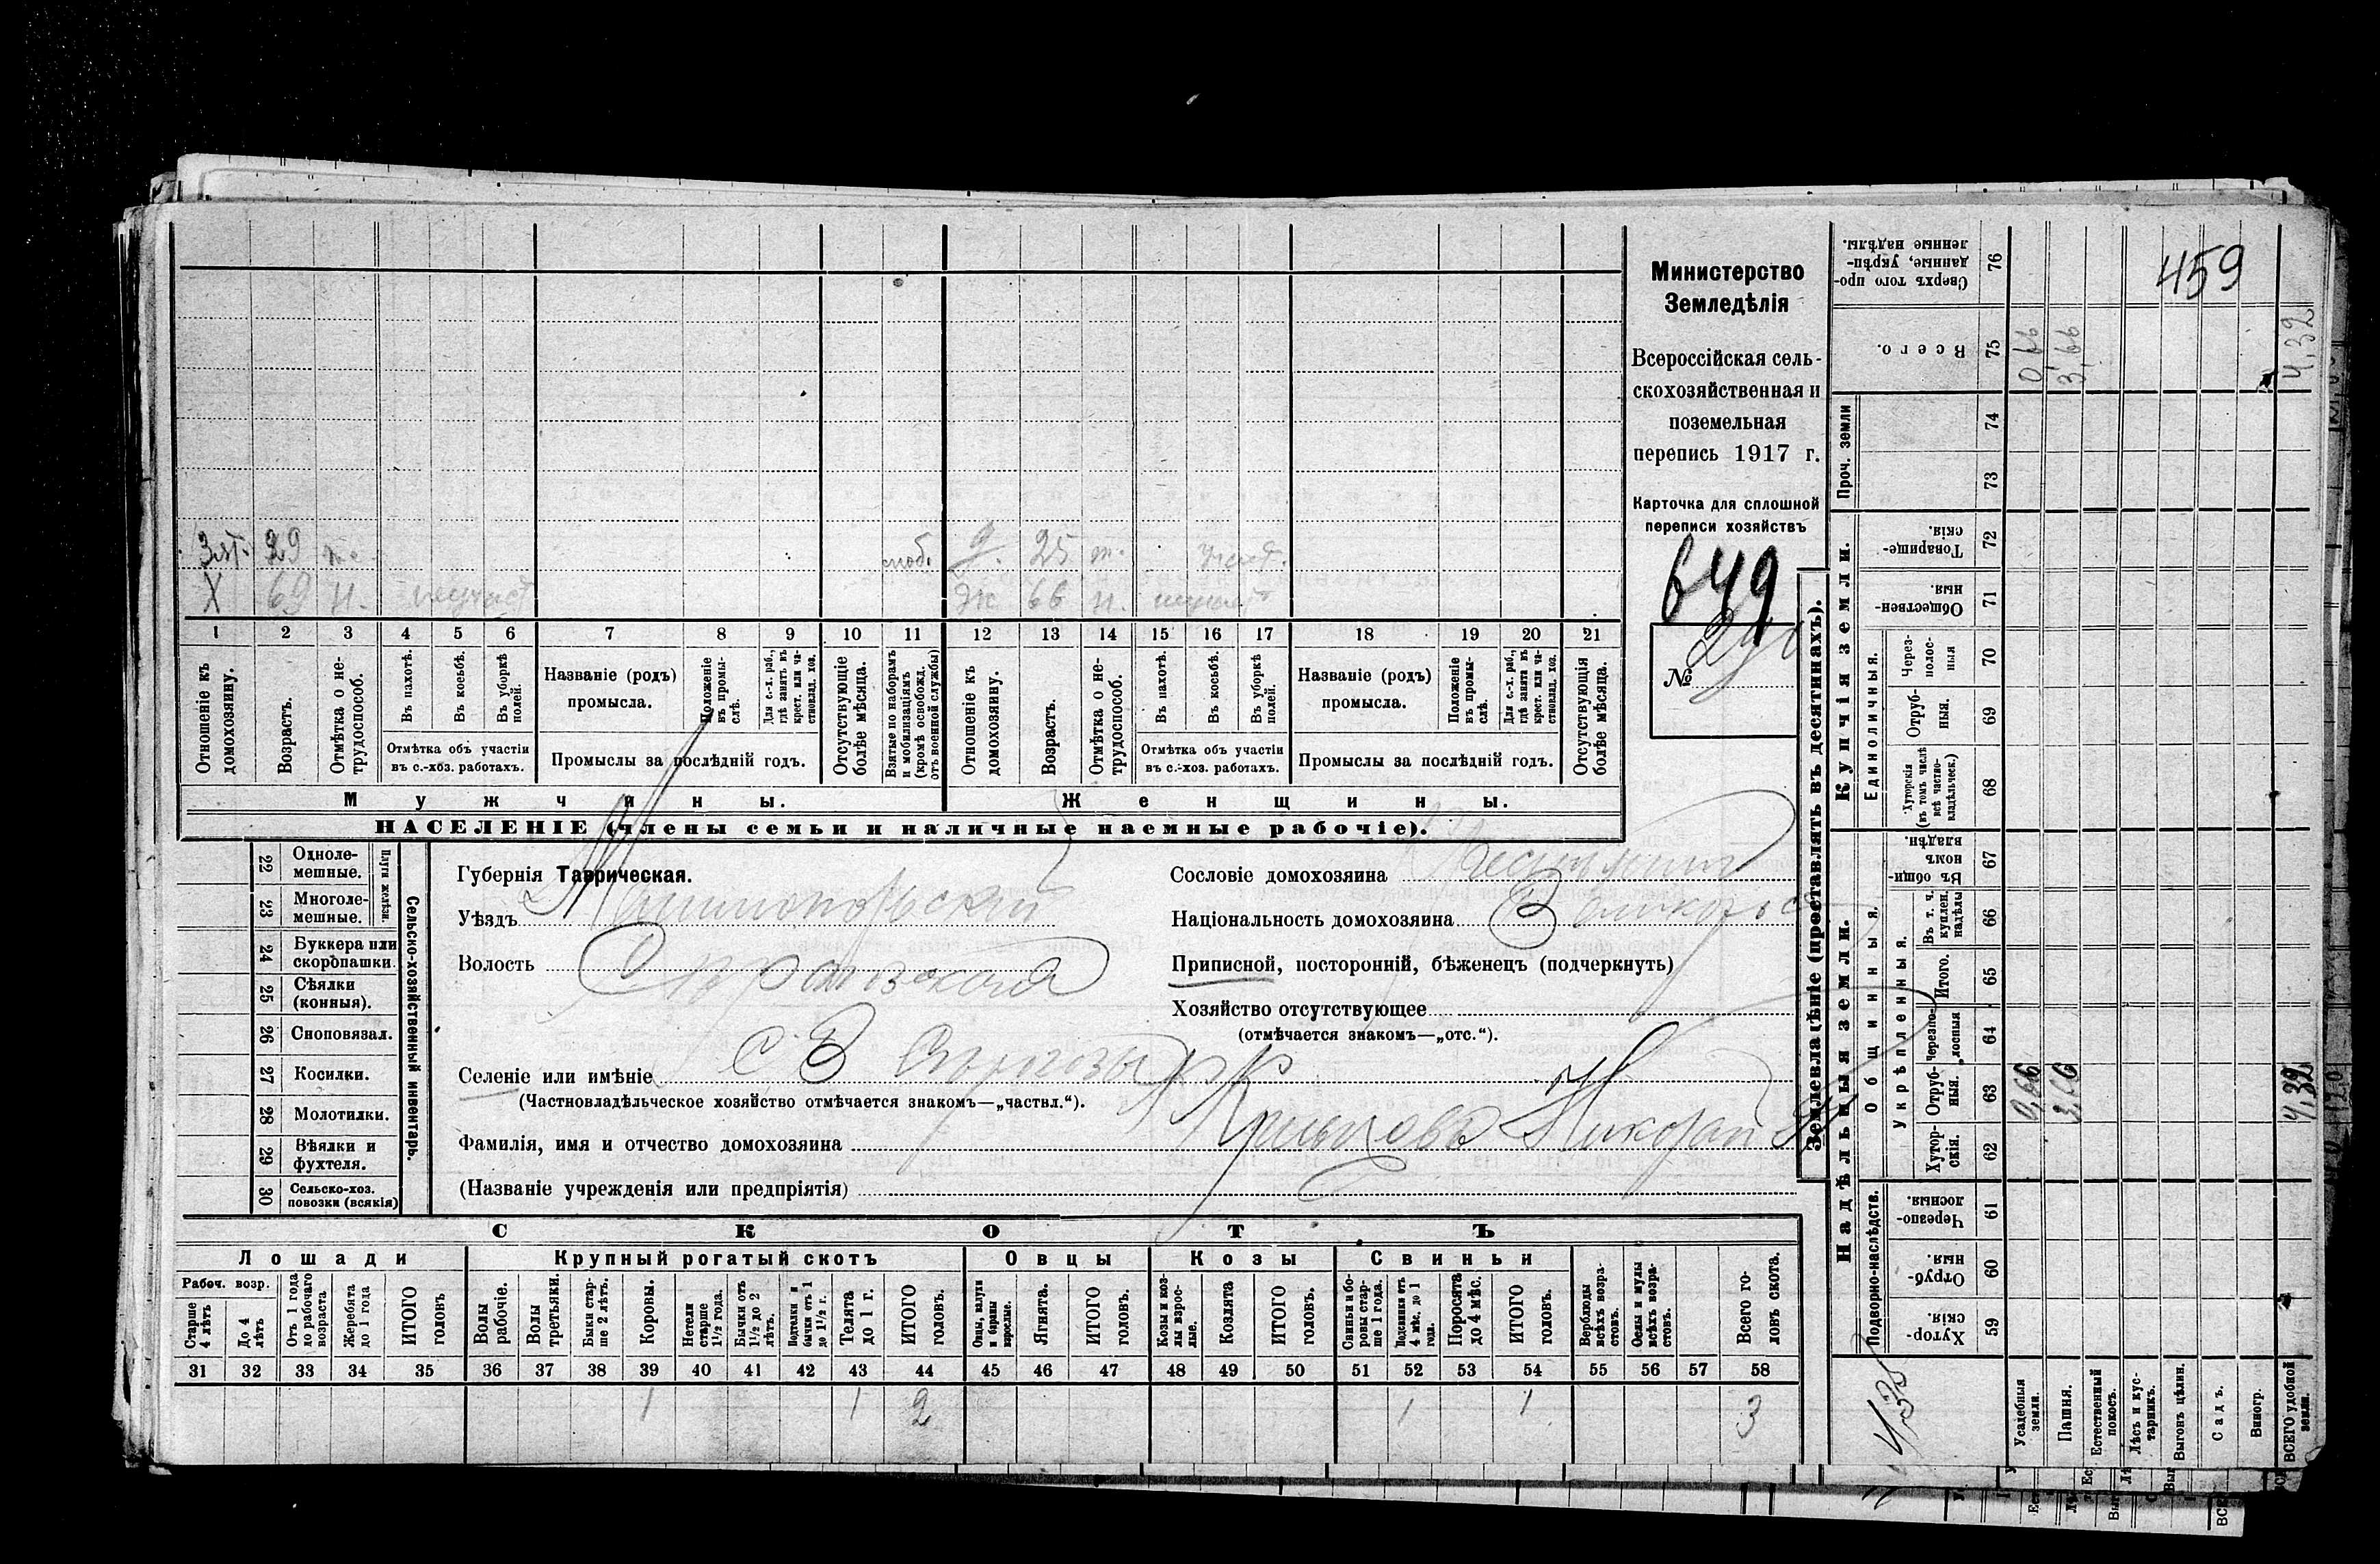 459
Министерство
Земледѣлія
Всероссійская сель-
скохозяйственная и
поземельная
перепись 1917 г.
Карточка для сплошной
переписи хозяйствъ
649
№
Зят. 29 т. моб. д. 25 т. участ.
Х 69 н. неучаст Ж 66 н.
1 2 3 4 5 6 7 8 9 10 11 12 13 14 15 16 17 18 19 20 21
Отношеніе къ домохозяину.
Возрастъ.
Отмѣтка о не-трудоспособ.
Въ пахотѣ.
Въ косьбѣ.
Въ уборкѣ полей.
Отмѣтка объ участіи
въ с.-хоз. работахъ.
Названіе (родъ)
промысла.
Положеніе въ промы-слѣ.
Для с.-х. раб., гдѣ занятъ въ крест. или ча-стновлад. хоз.
Промыслы за послѣдній годъ.
Отсутствующіе болѣе мѣсяца.
Взятые по наборамъ и мобилизаціямъ (кромѣ освобожд. отъ военной службы)
Отношеніе къ домохозяину.
Возрастъ.
Отмѣтка о не-трудоспособ.
Въ пахотѣ.
Въ косьбѣ.
Въ уборкѣ полей.
Отмѣтка объ участіи
въ с.-хоз. работахъ.
Названіе (родъ)
промысла.
Положеніе въ промы-слѣ.
Для с.-х. раб., гдѣ занята въ крест. или ча-стновлад. хоз.
Промыслы за послѣдній годъ.
Отсутствующія болѣе мѣсяца.
Мужчины.
Женщины.
НАСЕЛЕНІЕ (члены семьи и наличные наемные рабочіе).
22 Однолемешные.
23 Многолемешные.
Плуги желѣзн.
24 Буккера или скоропашки.
25 Сѣялки (конныя).
26 Сноповязал.
27 Косилки.
28 Молотилки.
29 Вѣялки и фухтеля.
30 Сельско-хоз. повозки (всякія)
Сельско-хозяйственный инвентарь.
Губернія Таврическая.
Уѣздъ
Волость
Селеніе или имѣніе
(Частновладѣльческое хозяйство отмѣчается знакомъ—„частвл.“).
Фамилія, имя и отчество домохозяина Николай
(Названіе учрежденія или предпріятія)
Сословіе домохозяина
Національность домохозяина
Приписной, посторонній, бѣженецъ (подчеркнуть)
Хозяйство отсутствующее
(отмѣчается знакомъ—„отс.“).
СКОТЪ
Лошади
Крупный рогатый скотъ
Овцы
Козы
Свиньи
Рабоч. возр.
Старше 4 лѣтъ
До 4 лѣтъ
Отъ 1 года до рабочаго возраста
Жеребята до 1 года
ИТОГО головъ
Волы рабочіе.
Волы третьяки.
Быки стар-ше 2 лѣтъ.
Коровы.
Нетели старше 1½ года.
Бычки отъ 1½ до 2 лѣтъ.
Подтелки и бычки отъ 1 до 1½ г.
Телята до 1 г.
ИТОГО головъ.
Овцы, валухи и бараны взрослые.
Ягнята.
ИТОГО головъ.
Козы и коз-лы взрос-лые.
Козлята
ИТОГО головъ.
Свиньи и бо-ровы стар-ше 1 года.
Подсвинки отъ 4 мѣс. до 1 года.
Поросята до 4 мѣс.
ИТОГО головъ.
Верблюды всѣхъ возра-стовъ.
Ослы и мулы всѣхъ возра-стовъ.
Всего го-ловъ скота.
31 32 33 34 35 36 37 38 39 40 41 42 43 44 45 46 47 48 49 50 51 52 53 54 55 56 57 58
1 1 2 1 1 3
Землевладѣніе (проставлять въ десятинахъ).
Надѣльныя земли.
Купчія земли.
Проч. земли
Подворно-наслѣдств.
Общинныя.
Укрѣпленныя.
Единоличныя.
59 Хутор-скія.
60 Отруб-ныя.
61 Черезпо-лосныя.
62 Хутор-скія.
63 Отруб-ныя.
64 Черезпо-лосныя
65 Итого.
66 Въ т. ч. куплен. надѣлы
67 Въ общин-номъ владѣн.
68 Хуторскія (въ томъ числѣ всѣ частно-владѣльческ.)
69 Отруб-ныя.
70 Через-полос-ныя
71 Обществен-ныя
72 Товарище-скія.
73
74
75 Всего.
76 Сверхъ того про-данные, укрѣп-ленные надѣлы.
Усадебная земля. 0,66 0,66
Пашня. 3,66 3,66
Естественный покосъ.
Лѣсъ и кус-тарникъ.
Выгонъ цѣлин.
Садъ.
Виногр.
ВСЕГО удобной земли. 4,32 4,32